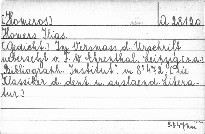 (Homeros) A 28120
Homers Ilias.
(Gedicht.) Im Versmass d. Urschrift
übersetzt v. F. W. Ehrenthal. Leipzig: o.a.
Bibliograph. Institut m 8° 472, (Die
Klassiker d. deut. u. ausland. Litera-
tur.)